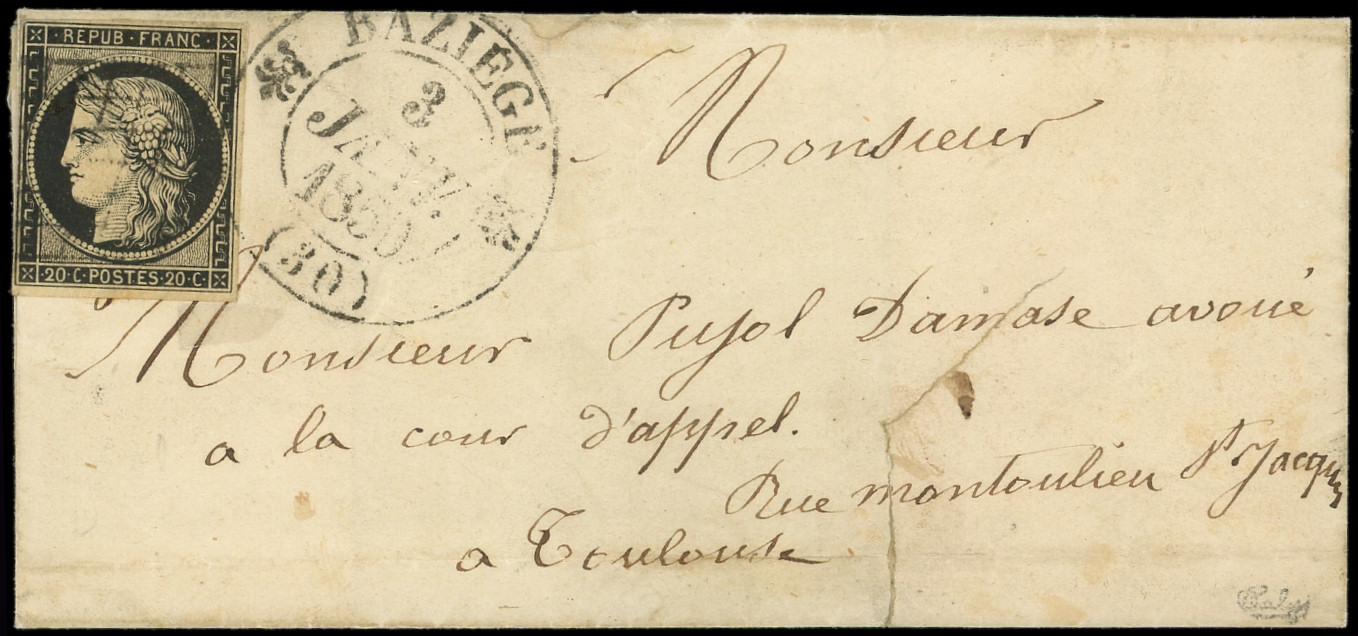 REPUB·FRANC·
20·C·POSTES·20·C·
BAZIEGE
3
JANV.
1850
(30)
Monsieur
Monsieur Pujol Damase avoué
a la cour d'appel.
Rue montoulieu St Jacques
a Toulouse